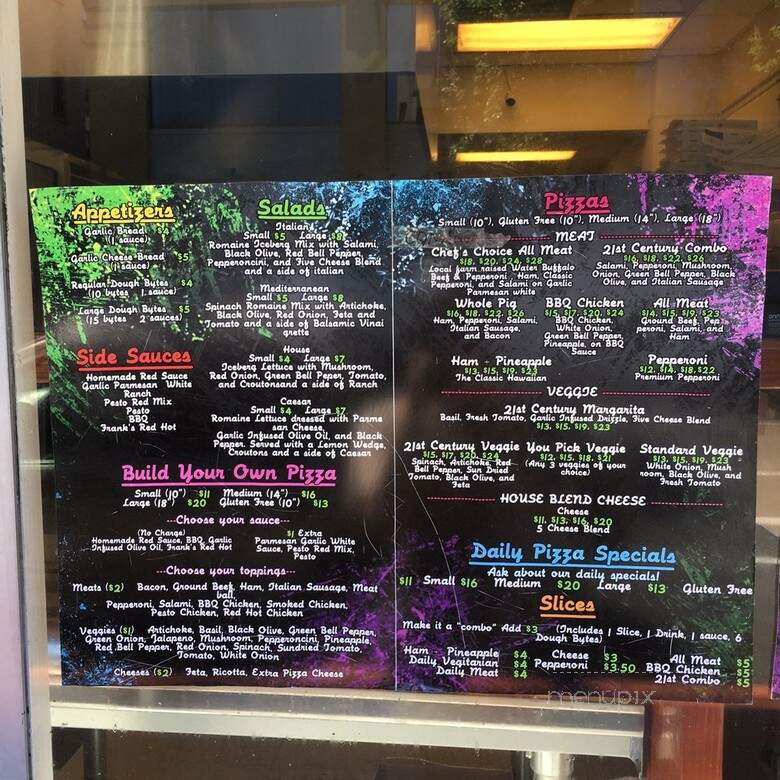 Appetizers
Garlic Bread $4
(1 sauce)
Garlic Cheese Bread $5
(1 sauce)
Regular Dough Bytes $4
(10 bytes 1 sauce)
Large Dough Bytes $5
(15 bytes 2 sauces)
Side Sauces
Homemade Red Sauce
Garlic Parmesan White
Ranch
Pesto Red Mix
Pesto
BBQ
Frank's Red Hot
Salads
Italian
Small $5 Large $8
Romaine Iceberg Mix with Salami,
Black Olive, Red Bell Pepper,
Pepperoncini, and Five Cheese Blend
and a side of italian
Mediterranean
Small $5 Large $8
Spinach Romaine Mix with Artichoke,
Black Olive, Red Onion, Feta and
Tomato and a side of Balsamic Vinai
grette
House
Small $4 Large $7
Iceberg Lettuce with Mushroom,
Red Onion, Green Bell Peper, Tomato,
and Croutonsand a side of Ranch
Caesar
Small $4 Large $7
Romaine Lettuce dressed with Parme
san Cheese,
Garlic Infused Olive Oil, and Black
Pepper. Served with a Lemon Wedge,
Croutons and a side of Caesar
Build Your Own Pizza
Small (10") $11 Medium (14") $16
Large (18") $20 Gluten Free (10") $13
---Choose your sauce---
(No Charge)
Homemade Red Sauce, BBQ, Garlic
Infused Olive Oil, Frank's Red Hot
$1 Extra
Parmesan Garlic White
Sauce, Pesto Red Mix,
Pesto
---Choose your toppings---
Meats ($2) Bacon, Ground Beef, Ham, Italian Sausage, Meat
ball,
Pepperoni, Salami, BBQ Chicken, Smoked Chicken,
Pesto Chicken, Red Hot Chicken
Veggies ($1) Artichoke, Basil, Black Olive, Green Bell Pepper,
Green Onion, Jalapeno, Mushroom, Pepperoncini, Pineapple,
Red Bell Pepper, Red Onion, Spinach, Sundried Tomato,
Tomato, White Onion
Cheeses ($2) Feta, Ricotta, Extra Pizza Cheese
Pizzas
Small (10"), Gluten Free (10"), Medium (14"), Large (18")
MEAT
Chef's Choice All Meat
$18, $20, $24, $28
Local farm raised Water Buffalo
Beef & Pepperoni, Ham, Classic
Pepperoni, and Salami on Garlic
Parmesan white
21st Century Combo
$16, $18, $22, $26
Salami, Pepperoni, Mushroom,
Onion, Green Bell Pepper, Black
Olive, and Italian Sausage
Whole Pig
$16, $18, $22, $26
Ham, Pepperoni, Salami,
Italian Sausage,
and Bacon
BBQ Chicken
$15, $17, $20, $24
BBQ Chicken,
White Onion,
Green Bell Pepper,
Pineapple, on BBQ
Sauce
All Meat
$14, $15, $19, $23
Ground Beef, Pep
peroni, Salami, and
Ham
Ham - Pineapple
$13, $15, $19, $23
The Classic Hawaiian
Pepperoni
$12, $14, $18, $22
Premium Pepperoni
VEGGIE
21st Century Margarita
Basil, Fresh Tomato, Garlic Infused Drizzle, Five Cheese Blend
$13, $15, $19, $23
21st Century Veggie
$15, $17, $20, $24
Spinach, Artichoke, Red
Bell Pepper, Sun Dried
Tomato, Black Olive, and
Feta
You Pick Veggie
$12, $15, $18, $21
(Any 3 veggies of your
choice)
Standard Veggie
$13, $15, $19, $23
White Onion, Mush
room, Black Olive, and
Fresh Tomato
HOUSE BLEND CHEESE
Cheese
$11, $13, $16, $20
5 Cheese Blend
Daily Pizza Specials
Ask about our daily specials!
$11 Small $16 Medium $20 Large $13 Gluten Free
Slices
Make it a "combo" Add $3 (Includes 1 Slice, 1 Drink, 1 sauce, 6
Dough Bytes)
Ham - Pineapple $4
Daily Vegitarian $4
Daily Meat $4
Cheese $3
Pepperoni $3.50
All Meat $5
BBQ Chicken $5
21st Combo $5
menupix